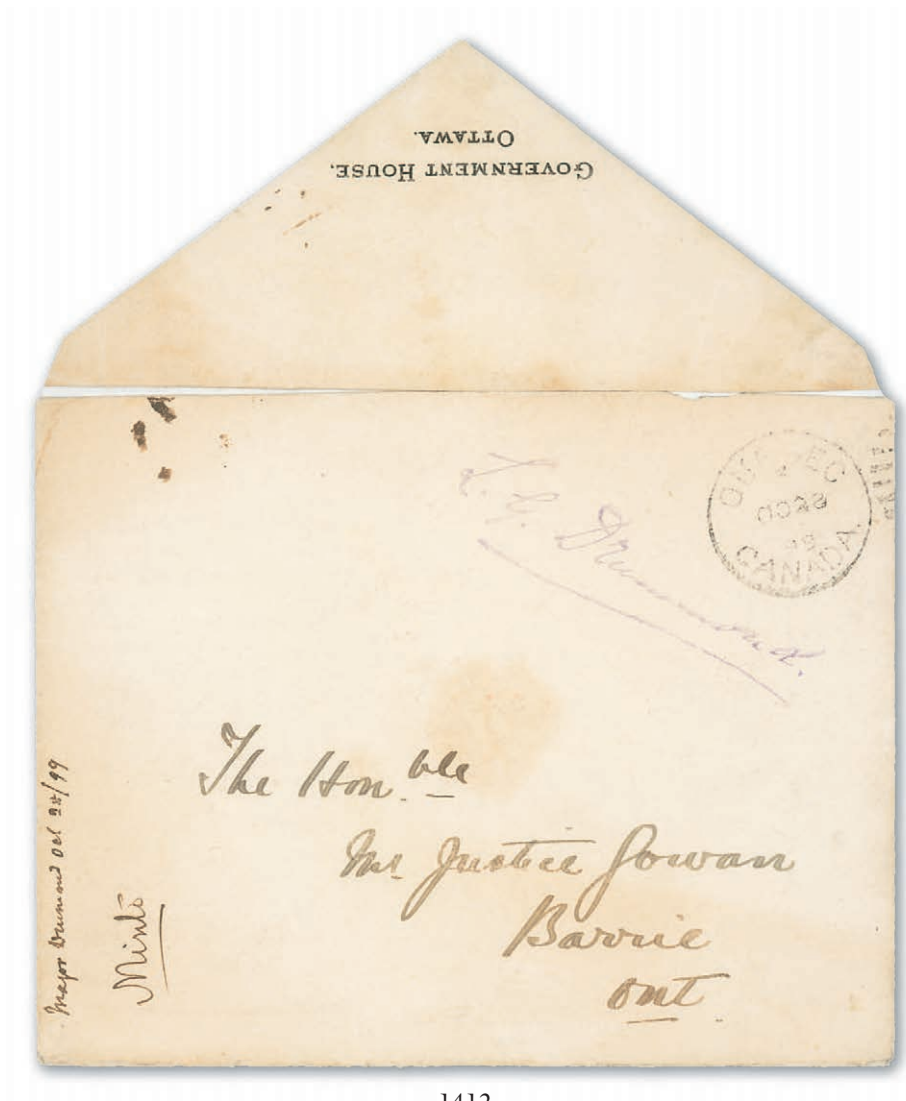 GOVERNMENT HOUSE,
OTTAWA.
L. G. Drummond.
QUEBEC
OC 28
99
CANADA
The Hon.ble
Mr Justice Gowan
Barrie
Ont.
Major Drummond Oct 28/99
Minto
1412